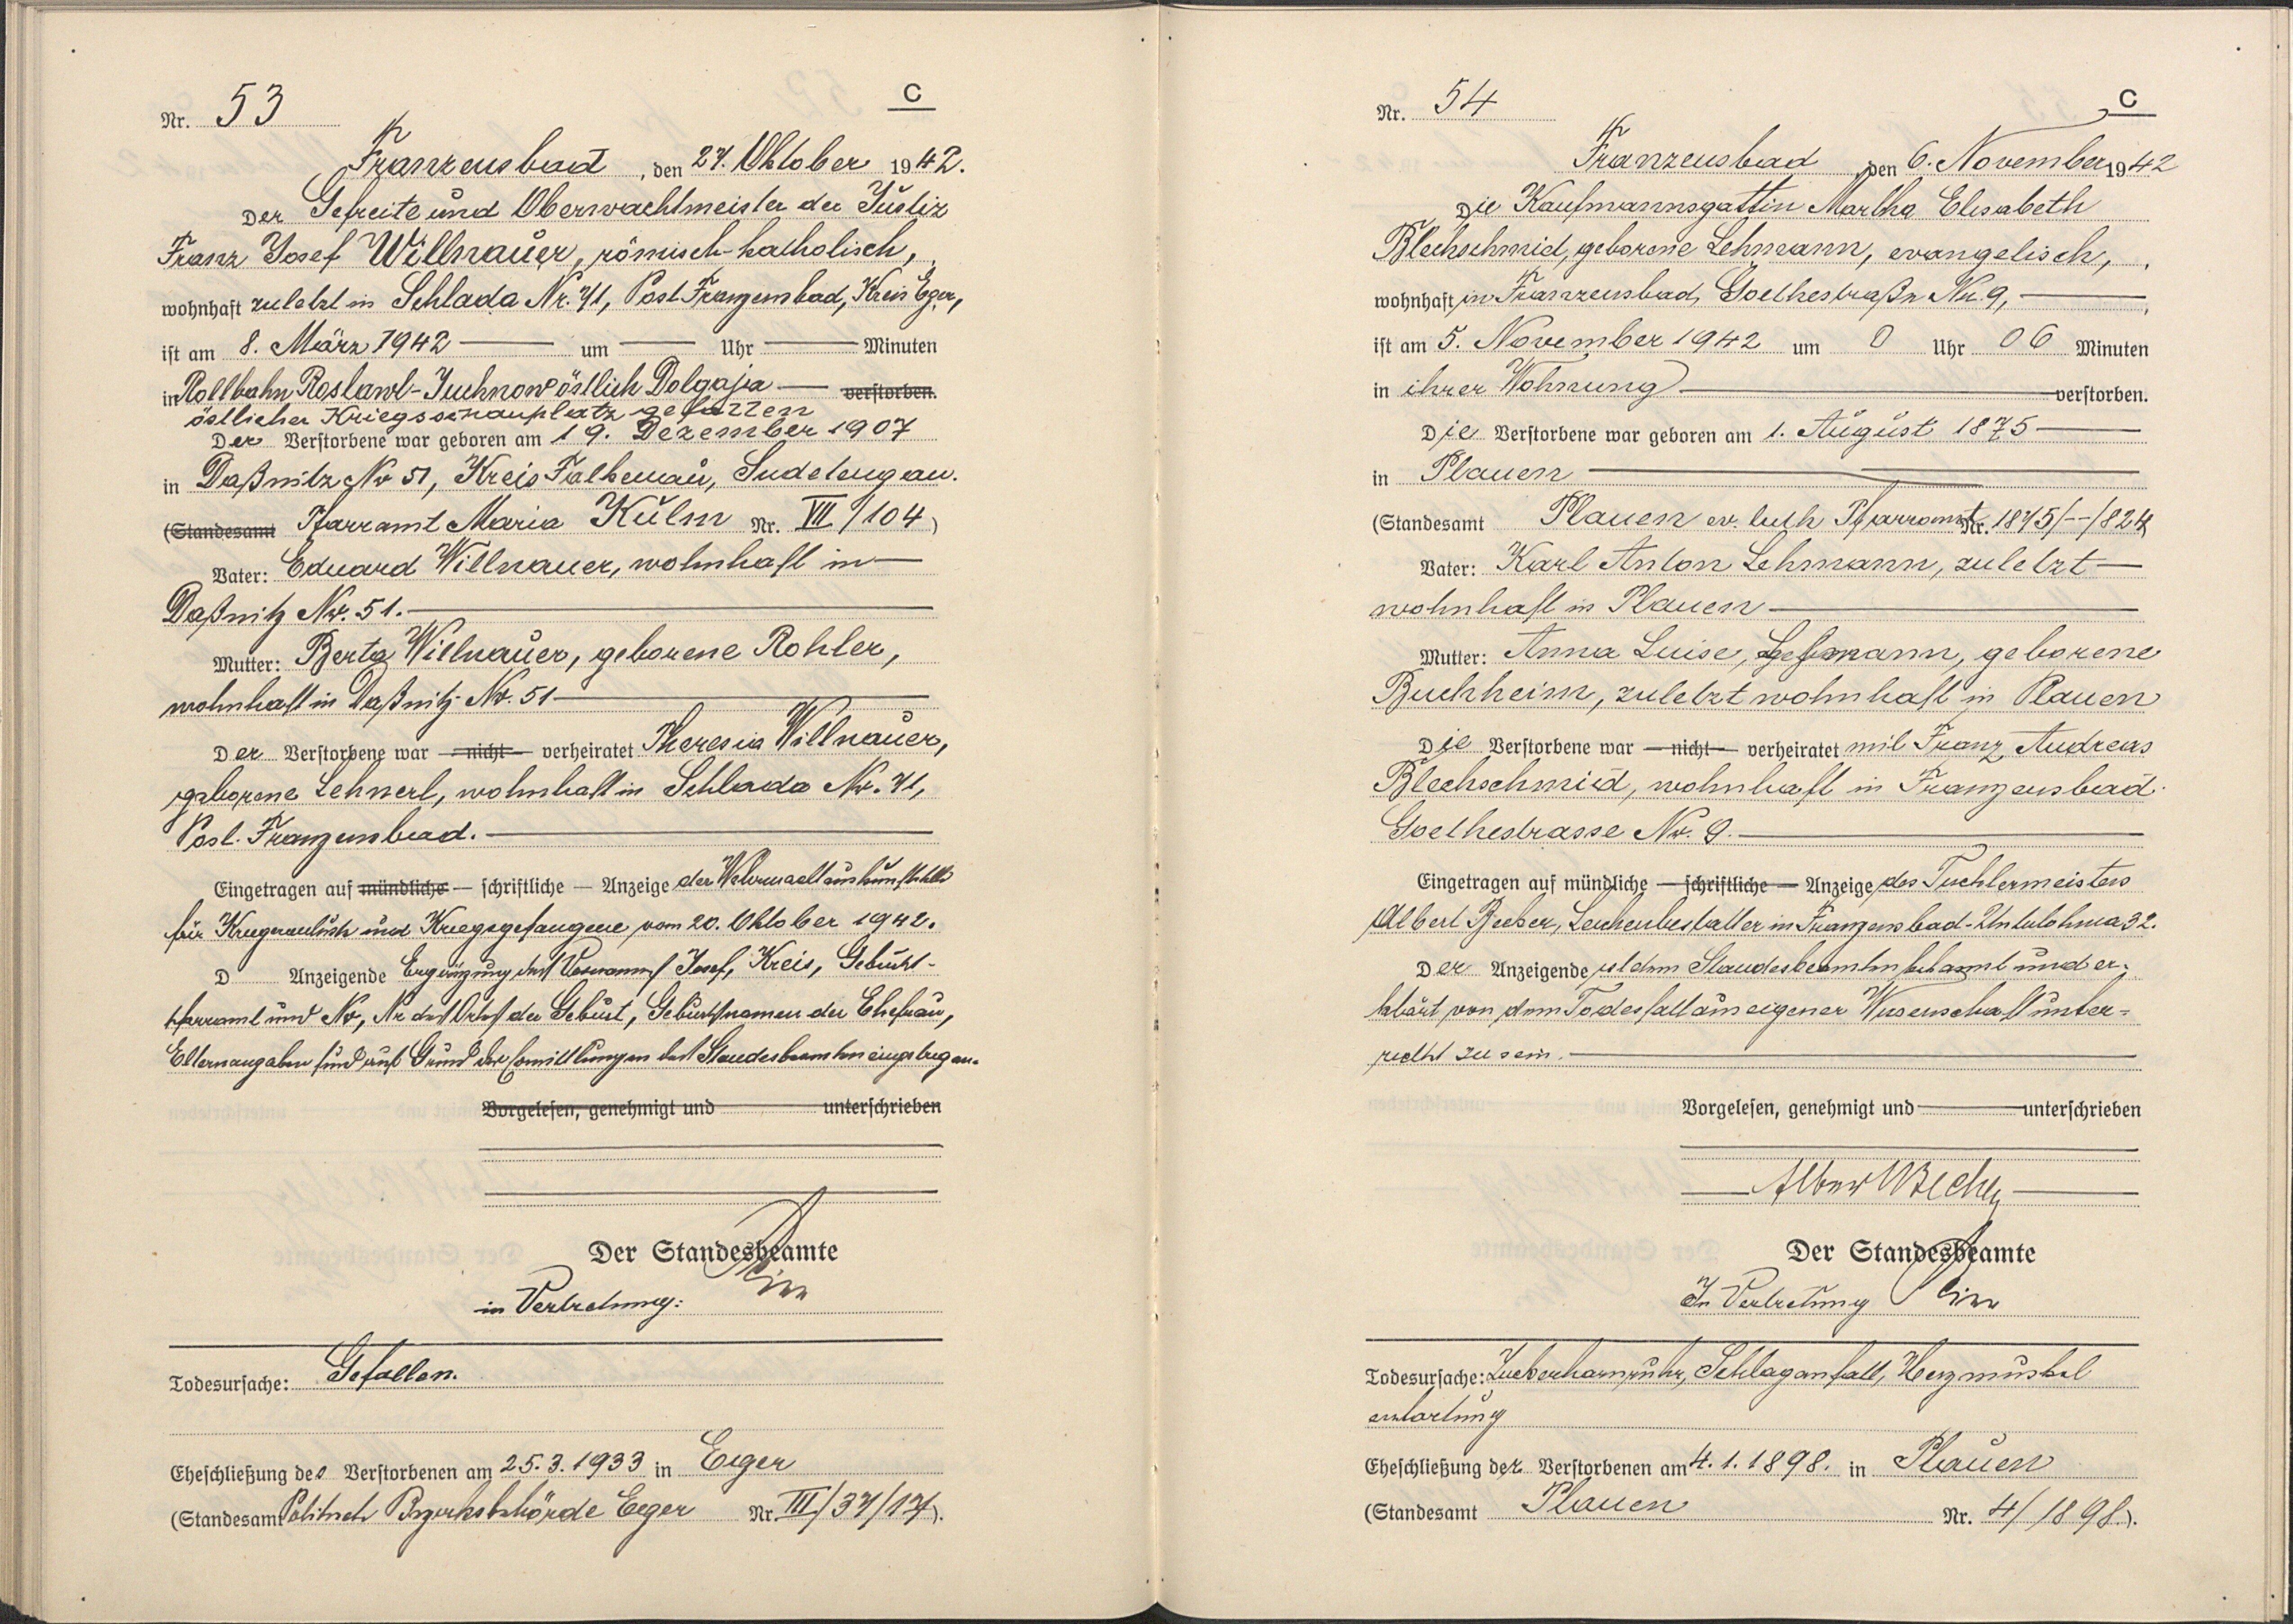 Nr. 53
C
Franzensbad, den 27. Oktober 1942.
Der Gefreite und Oberwachtmeister der Justiz
Franz Josef Willnauer, römisch-katholisch,
wohnhaft zuletzt in Schlada Nr. 71, Post Franzensbad, Kreis Eger,
ist am 8. März 1942 — um — Uhr — Minuten
in Rollbahn Roslawl-Juchnow östlich Dolgaja — verstorben.
östlicher Kriegsschauplatz gefallen
Der Verstorbene war geboren am 19. Dezember 1907
in Daßnitz Nr 51, Kreis Falkenau, Sudetengau.
(Standesamt Pfarramt Maria Kulm Nr. VII/104)
Vater: Eduard Willnauer, wohnhaft in —
Daßnitz Nr. 51. —
Mutter: Berta Willnauer, geborene Rohler,
wohnhaft in Daßnitz Nr. 51 —
Der Verstorbene war — nicht — verheiratet Theresia Willnauer,
geborene Lehnerl, wohnhaft in Schlada Nr. 71,
Post Franzensbad. —
Eingetragen auf mündliche — schriftliche — Anzeige der Wehrmachtauskunftstelle
für Kriegerverluste und Kriegsgefangene vom 20. Oktober 1942.
D Anzeigende Ergänzung des Vornamens Josef, Kreis, Geburts-
pfarramt und Nr, Nr des Ortes der Geburt, Geburtsnamen der Ehefrau,
Elternangaben sind auf Grund der Ermittlungen des Standesbeamten eingetragen.
Vorgelesen, genehmigt und — unterschrieben
Der Standesbeamte
in Vertretung:
Todesursache: Gefallen.
Eheschließung des Verstorbenen am 25.3.1933 in Eger
(Standesamt Politisch Bezirksbehörde Eger Nr. III/37/17).
Nr. 54
C
Franzensbad, den 6. November 1942
Die Kaufmannsgattin Martha Elisabeth
Blechschmid, geborene Lehmann, evangelisch,
wohnhaft in Franzensbad, Goethestraße Nr. 9, —
ist am 5. November 1942 um 0 Uhr 06 Minuten
in ihrer Wohnung — verstorben.
Die Verstorbene war geboren am 1. August 1875 —
in Plauen —
(Standesamt Plauen ev. luth Pfarramt Nr. 1875/--/824
Vater: Karl Anton Lehmann, zuletzt —
wohnhaft in Plauen —
Mutter: Anna Luise, Lehmann, geborene
Buchheim, zuletzt wohnhaft in Plauen
Die Verstorbene war — nicht — verheiratet mit Franz Andreas
Blechschmid, wohnhaft in Franzensbad
Goethestrasse Nr. 9. —
Eingetragen auf mündliche — schriftliche — Anzeige des Tischlermeisters
Albert Becher, Leichenbestatter in Franzensbad-Unterlohma 32.
Der Anzeigende ist dem Standesbeamten bekannt und er-
klärt von dem Todesfall aus eigener Wissenschaft unter-
richtet zu sein. —
Vorgelesen, genehmigt und — unterschrieben
Albert Becher
Der Standesbeamte
In Vertretung
Todesursache: Zuckerharnruhr, Schlaganfall, Herzmuskel
entartung
Eheschließung der Verstorbenen am 4.1.1898. in Plauen
(Standesamt Plauen Nr. 4/1898.).